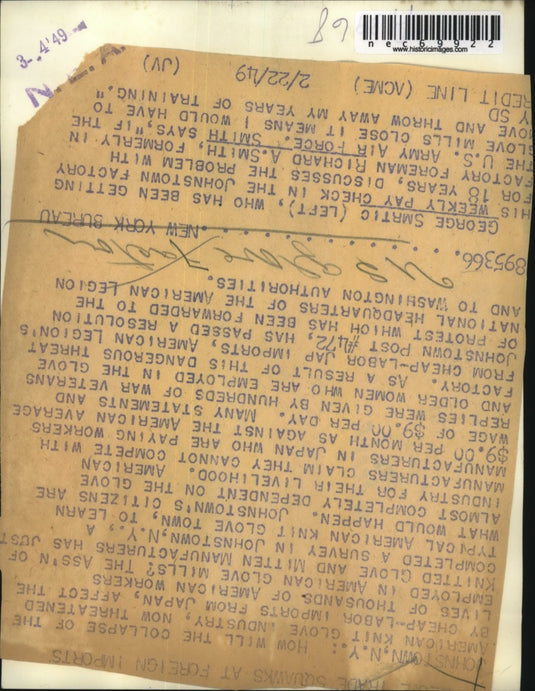 TRADE SQUAWKS AT FOREIGN IMPORTS
JOHNSTOWN, N.Y.: HOW WILL THE COLLAPSE OF THE
AMERICAN KNIT GLOVE INDUSTRY, NOW THREATENED
BY CHEAP-LABOR IMPORTS FROM JAPAN, AFFECT THE
LIVES OF THOUSANDS OF AMERICAN WORKERS
EMPLOYED IN AMERICAN GLOVE MILLS? THE ASS'N OF
KNITTED GLOVE AND MITTEN MANUFACTURERS HAS JUST
COMPLETED A SURVEY IN JOHNSTOWN,N.Y., A
TYPICAL AMERICAN KNIT GLOVE TOWN, TO LEARN
WHAT WOULD HAPPEN. JOHNSTOWN'S CITIZENS ARE
ALMOST COMPLETELY DEPENDENT ON THE GLOVE
INDUSTRY FOR THEIR LIVELIHOOD. AMERICAN
MANUFACTURERS CLAIM THEY CANNOT COMPETE WITH
MANUFACTURERS IN JAPAN WHO ARE PAYING WORKERS
$9.00 PER MONTH AS AGAINST THE AMERICAN AVERAGE
WAGE OF $9.00 PER DAY. MANY STATEMENTS AND
REPLIES WERE GIVEN BY HUNDREDS OF WAR VETERANS
AND OLDER WOMEN WHO ARE EMPLOYED IN THE GLOVE
FACTORY. AS A RESULT OF THIS DANGEROUS THREAT
FROM CHEAP-LABOR JAP IMPORTS, AMERICAN LEGION'S
JOHNSTOWN POST #472, HAS PASSED A RESOLUTION
OF PROTEST WHICH HAS BEEN FORWARDED TO THE
NATIONAL HEADQUARTERS OF THE AMERICAN LEGION
AND TO WASHINGTON AUTHORITIES.
Glove
895366 NEW YORK BUREAU
GEORGE SMRTIC (LEFT), WHO HAS BEEN GETTING
HIS WEEKLY PAY CHECK IN THE JOHNSTOWN FACTORY
FOR 18 YEARS, DISCUSSES THE PROBLEM WITH
FACTORY FOREMAN RICHARD A.SMITH, FORMERLY, IN
THE U.S. ARMY AIR FORCE. SMITH SAYS,"IF THE
GLOVE MILLS CLOSE IT MEANS I WOULD HAVE TO
MOVE AND THROW AWAY MY YEARS OF TRAINING."
Y SD
REDIT LINE (ACME) 2/22/49 (JV)
3-4'49
N.E.A.
www.historicimages.com
nec69922